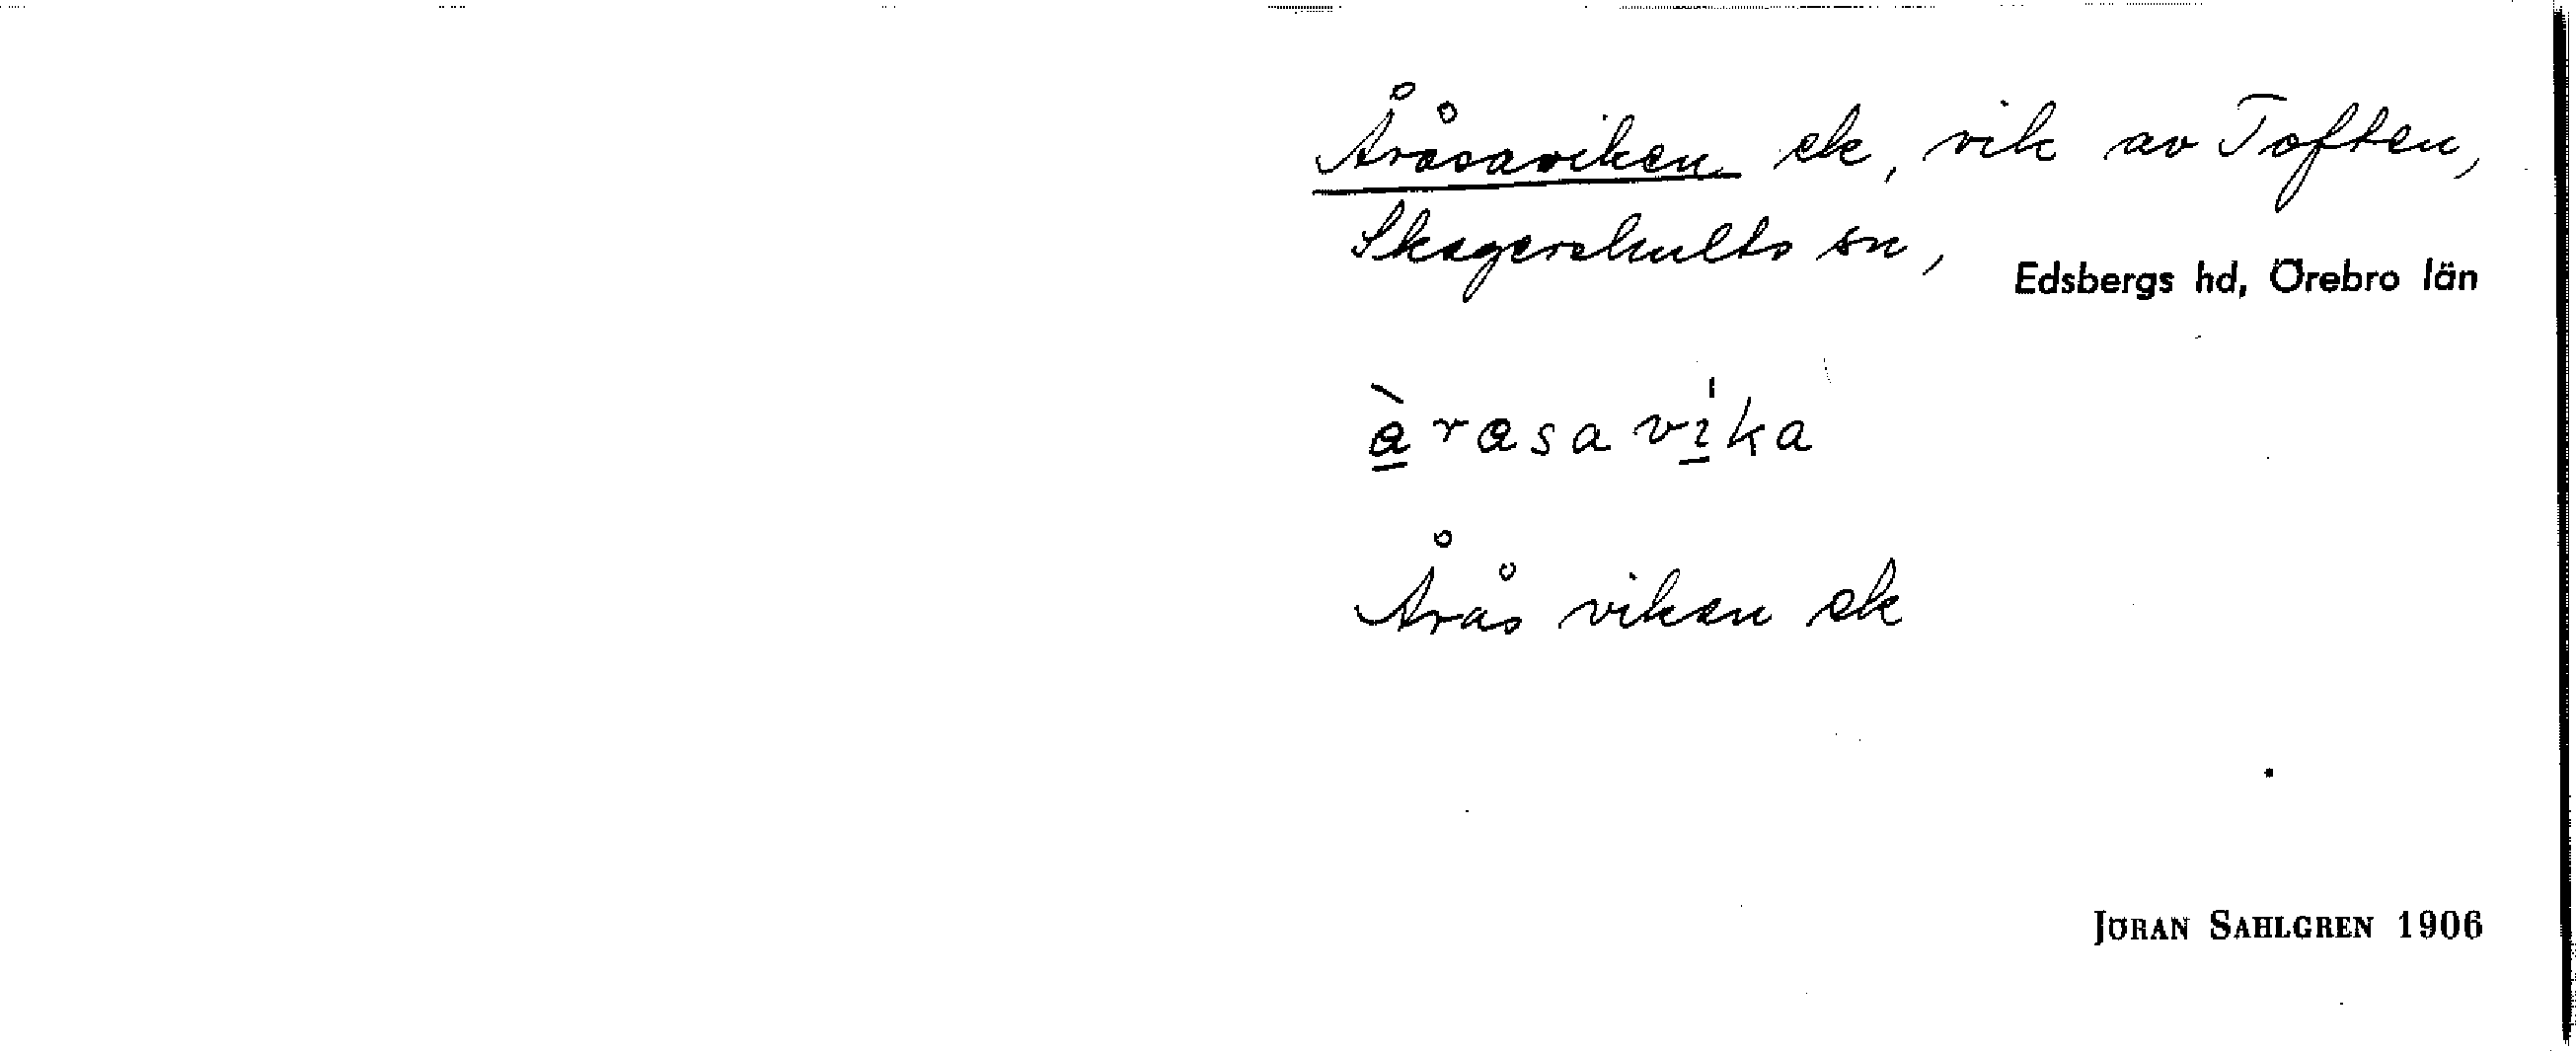 Åråsaviken ek, vik av Toften,
Skagershults sn,
Edsbergs hd, Örebro län
å̱̀rasavi̱̍ka
Årås viken ek
JÖRAN SAHLGREN 1906